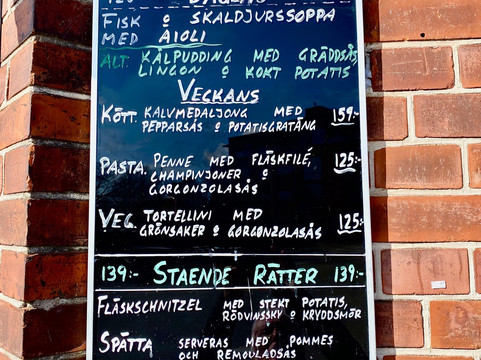 FISK O SKALDJURSSOPPA
MED AIOLI
ALT. KÅLPUDDING MED GRÄDDSÅS
LINGON O KOKT POTATIS
VECKANS
KÖTT. KALVMEDALJONG MED 159:-
PEPPARSÅS O POTATISGRATÄNG
PASTA. PENNE MED FLÄSKFILÉ, 125:-
CHAMPINJONER O
GORGONZOLASÅS
VEG. TORTELLINI MED 125:-
GRÖNSAKER O GORGONZOLASÅS
139:- STAENDE RÄTTER 139:-
FLÄSKSCHNITZEL MED STEKT POTATIS,
RÖDVINSSKY O KRYDDSMÖR
SPÄTTA SERVERAS MED POMMES
OCH REMOULADSÅS